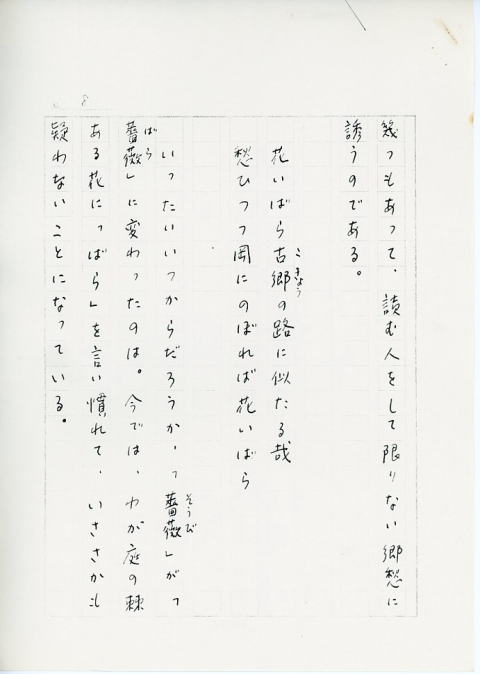 幾つもあって、読む人をして限りない郷愁に
誘うのである。
花いばら古郷の路に似たる哉
こきょう
愁ひつつ岡にのぼれば花いばら
いったいいつからだろうか、「薔薇」が「
そうび
薔薇」に変わったのは。今では、わが庭の棘
ばら
ある花に「ばら」を言い慣れて、いささかも
疑わないことになっている。
8